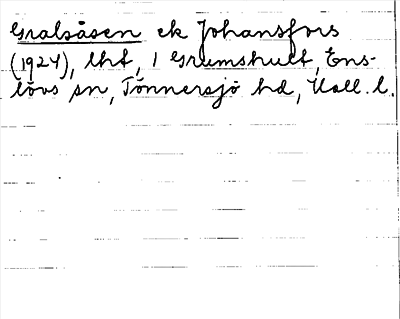 Gralsåsen ek Johansfors
(1924), lht, 1 Grumshult, Ens-
lövs sn, Tönnersjö hd, Hall. l.